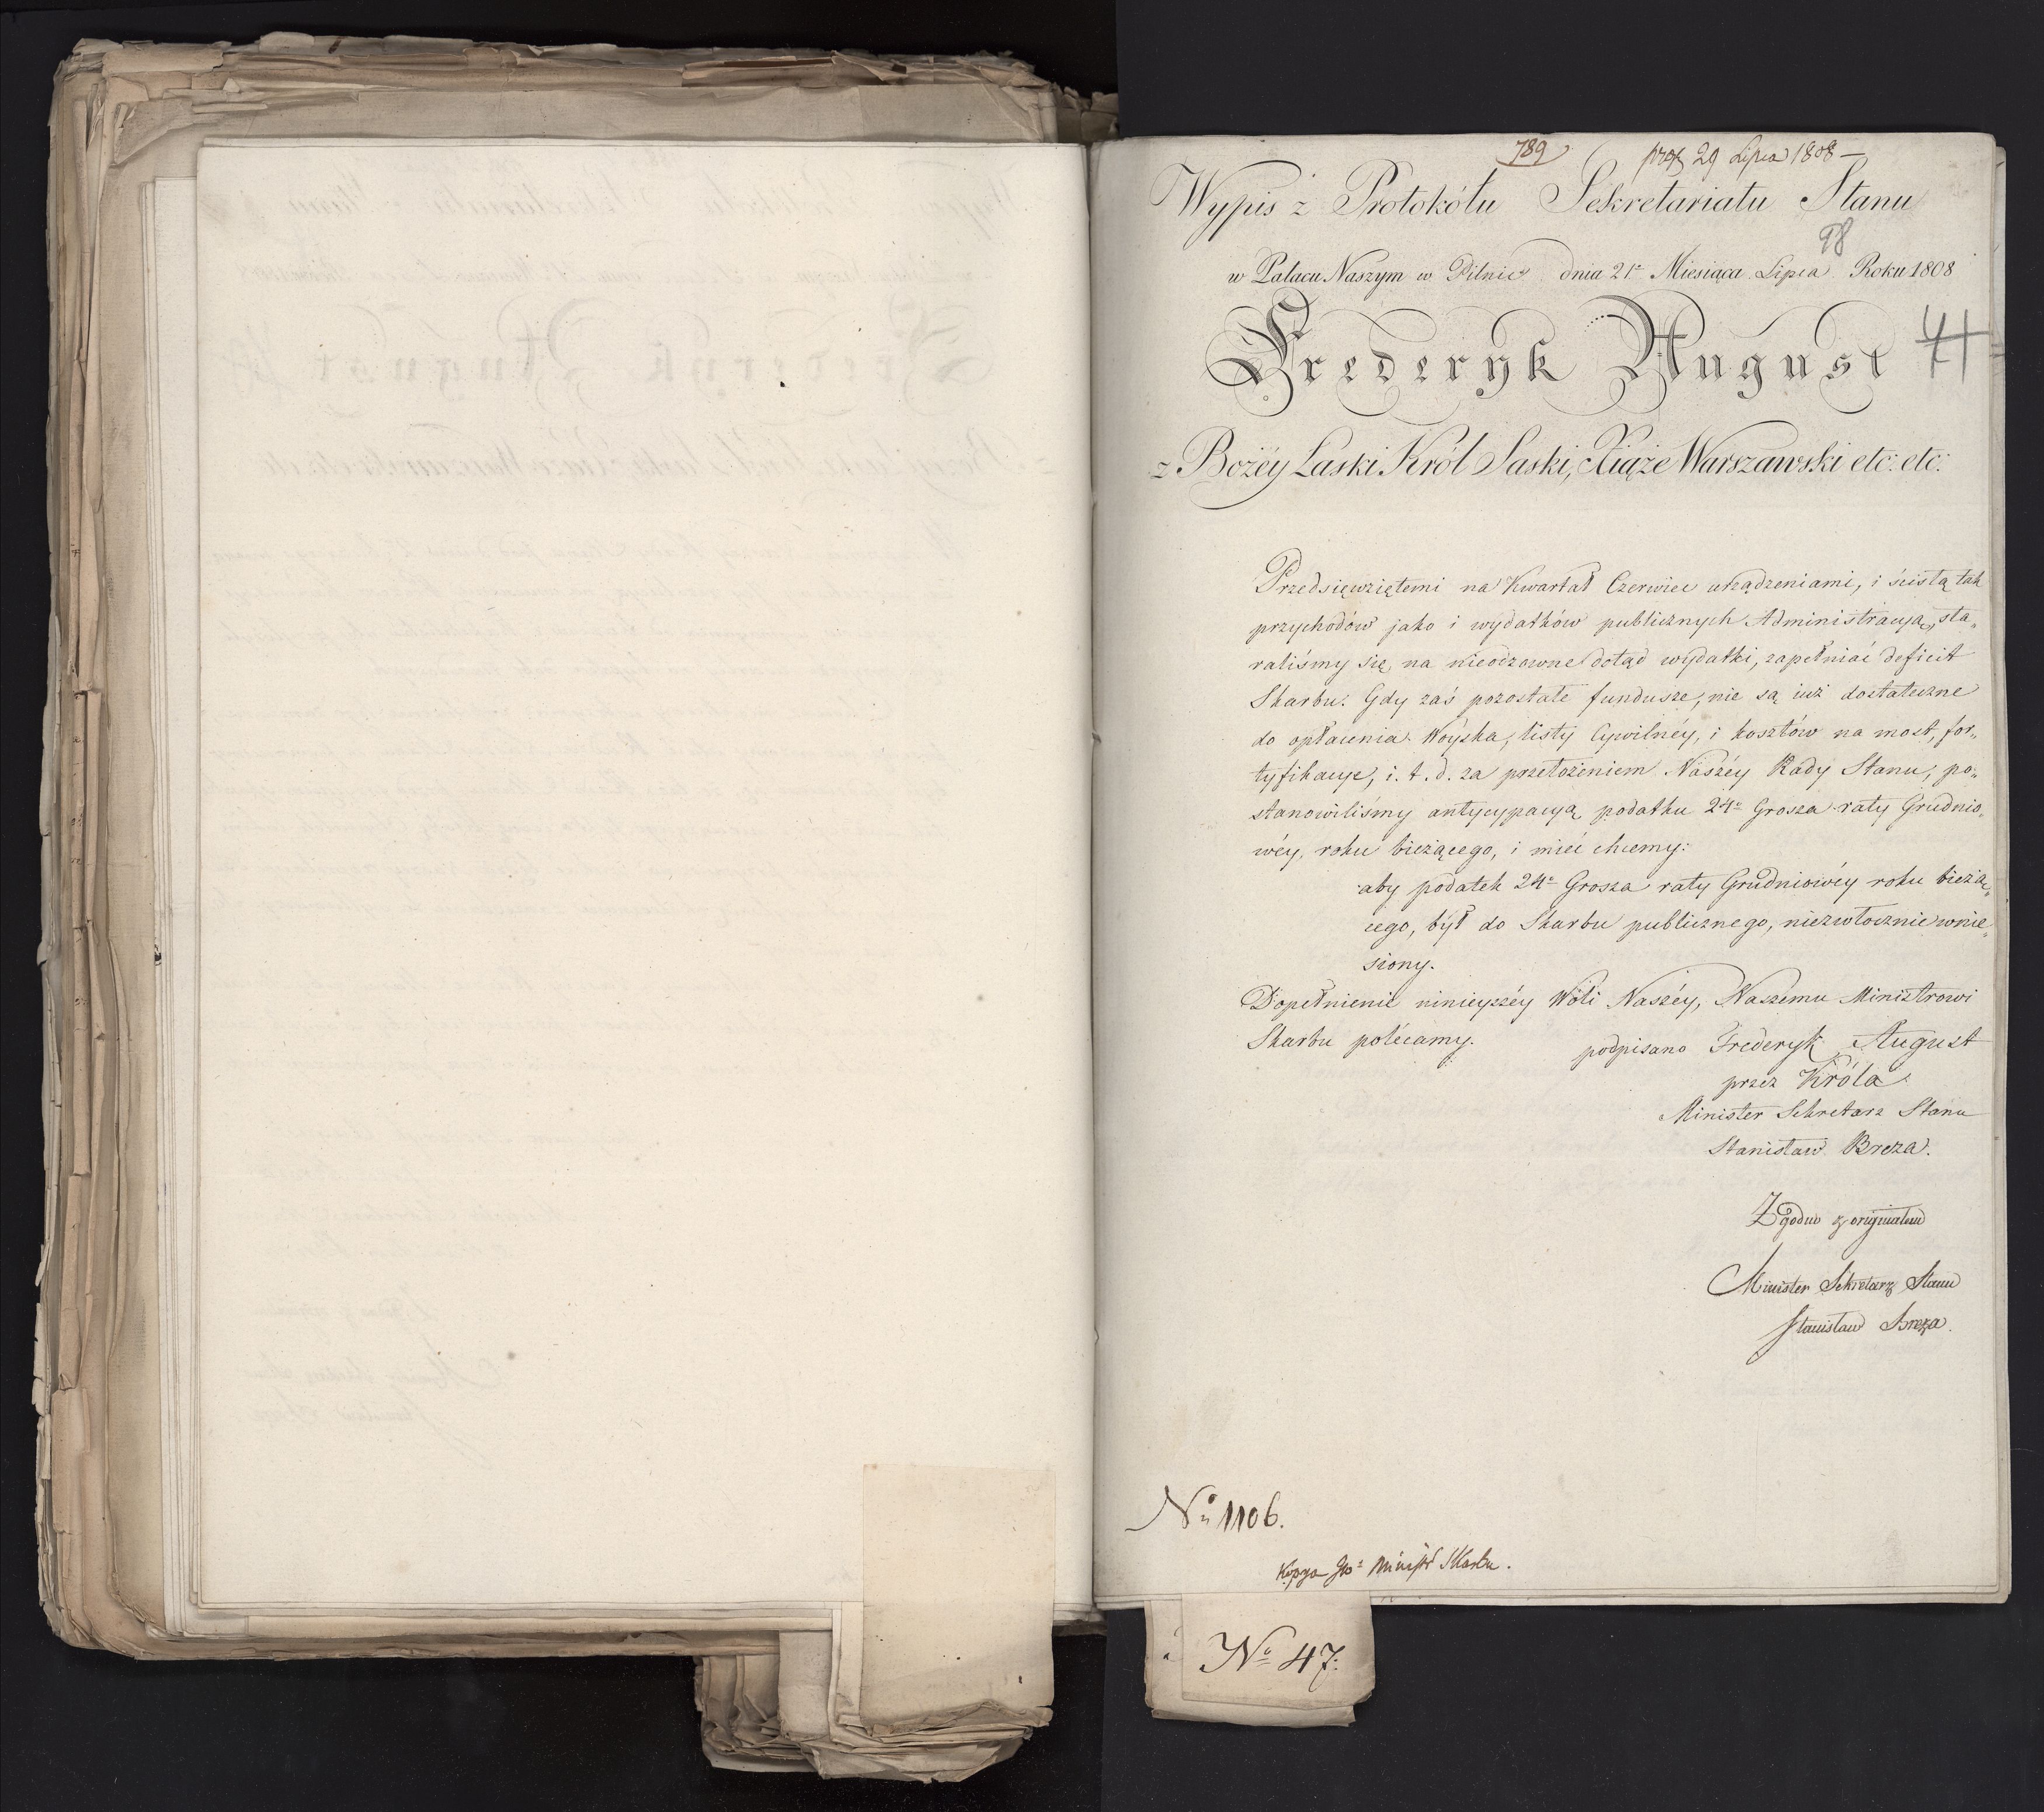 789
29 Lipca 1808 —
Wypis z Protokółu Sekretariatu Stanu
98
w Pałacu Naszym w Pilnic dnia 21º Miesiąca Lipca Roku 1808
Frederyk August
z Bożéy Łaski Król Saski, Xiąże Warszawski etc: etc:
Przedsięwziętemi na Kwartał Czerwiec urządzeniami, i ścisłą tak
przychodów jako i wydatków publicznych Administracyą, sta„
raliśmy się, na nieodzowne dotąd wydatki, zapełniać deficit
Skarbu: Gdy zaś pozostałe fundusze, nie są iuż dostateczne
do opłacenia Woyska, listy Cywilnéy, i kosztów na most, for„
tyfikacye, i. t. d. za przełożeniem Naszéy Rady Stanu, po„
stanowiliśmy antycypacyą podatku 24º Grosza raty Grudnio„
wéy, roku bieżącego, i mieć chcemy:
aby podatek 24º Grosza raty Grudniowéy roku bieżą„
cego, był do Skarbu publicznego, niezwłocznie wnie„
siony.
Dopełnienie ninieyszéy Woli Naszéy, Naszemu Ministrowi
Skarbu polécamy.
podpisano Frederyk August
przez Króla
Minister Sekretarz Stanu
Stanisław Breza.
Zgodno z originałem
Minister Sekretarz Stanu
Stanisław Breza.
Nº 1106.
Kopya Ministr Skarbu.
Nº 47: